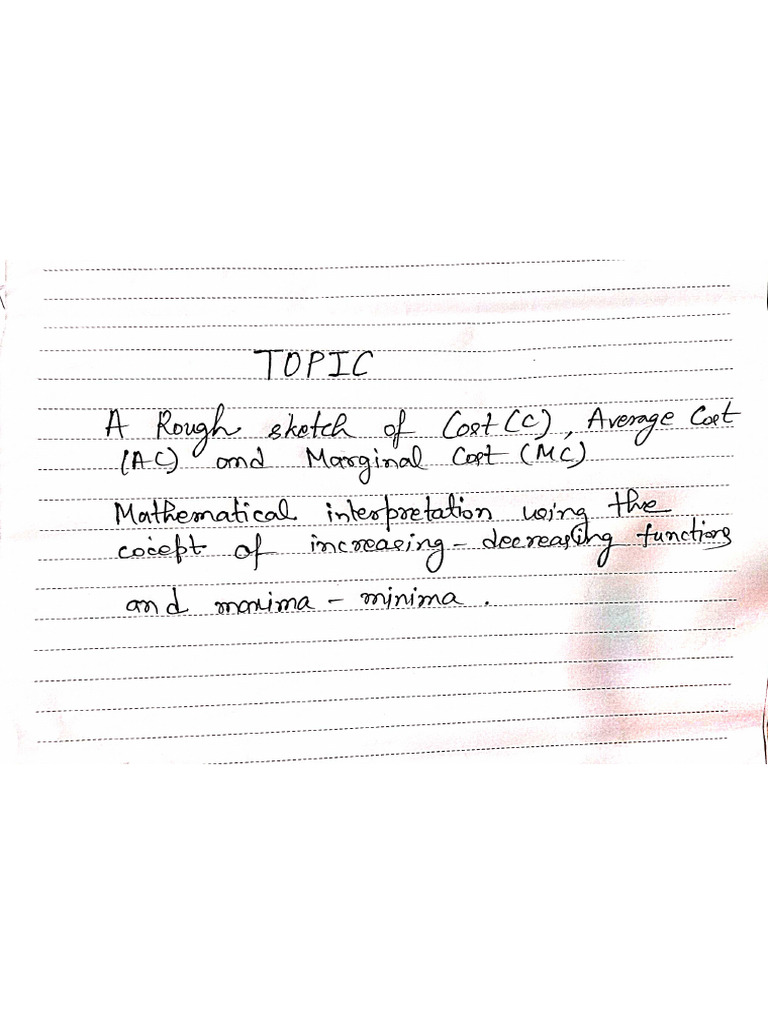 TOPIC
A Rough sketch of Cost (C), Average Cost
(AC) and Marginal Cost (MC)
Mathematical interpretation using the
cocept of increasing - decreasing functions
and maxima - minima.